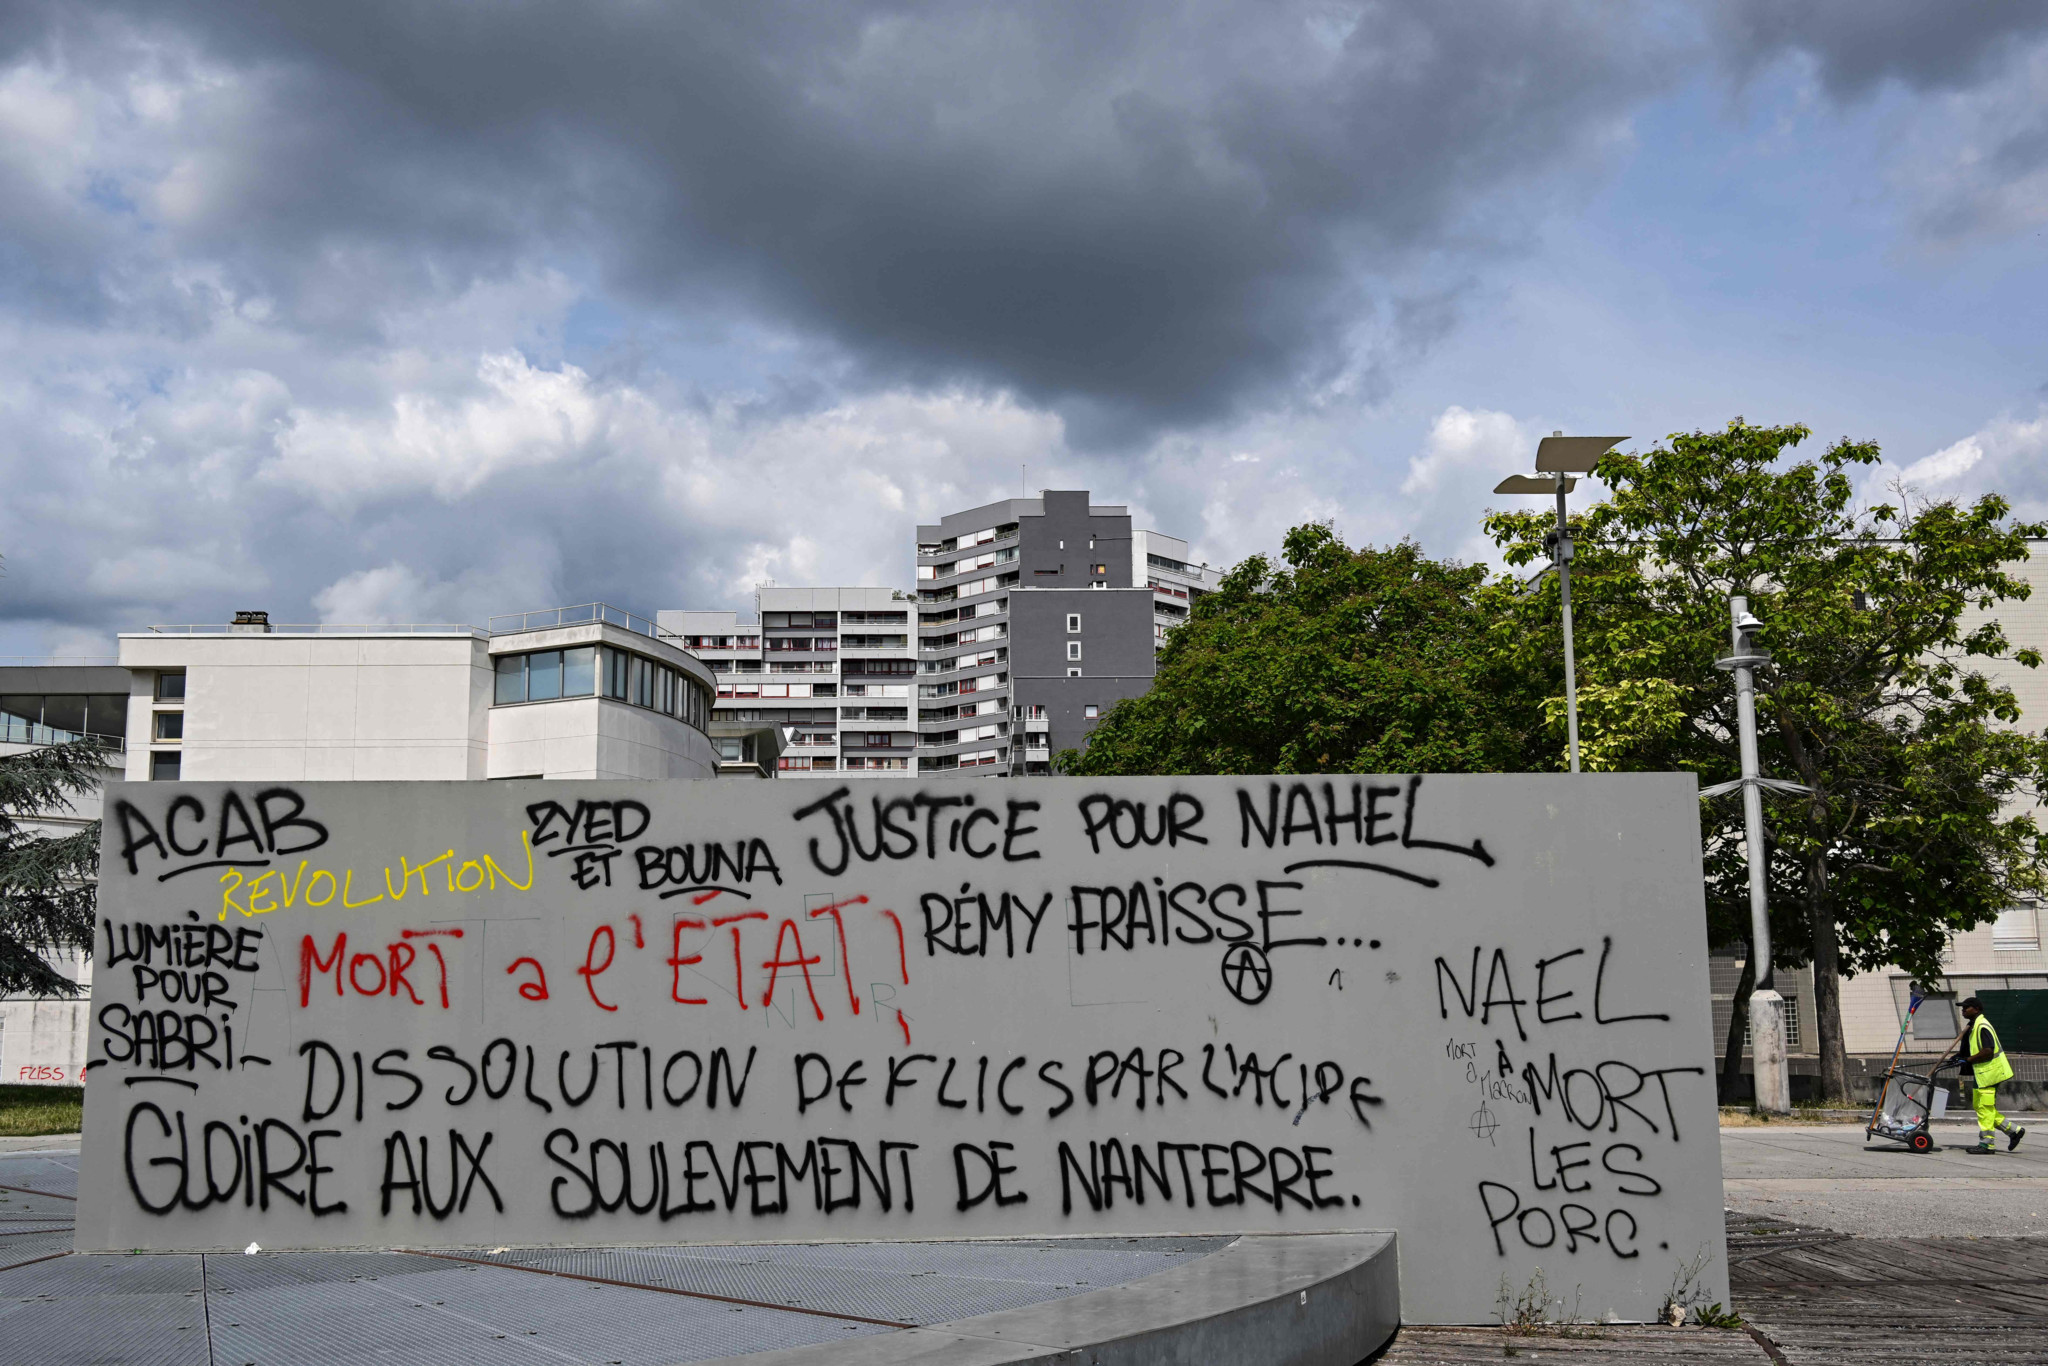 ACAB
REVOLUTION
ZYED
ET BOUNA
JUSTiCE POUR NAHEL
RÉMY FRAiSSE...
LUMiÈRE
POUR
SABRi
MORT a l'ÉTAT!
DISSOLUTION DE FLICS PAR L'ACIDE
GLOiRE AUX SOULEVEMENT DE NANTERRE.
NAEL
À MORT
LES
PORC.
MORT
a
MACRON
FLISS